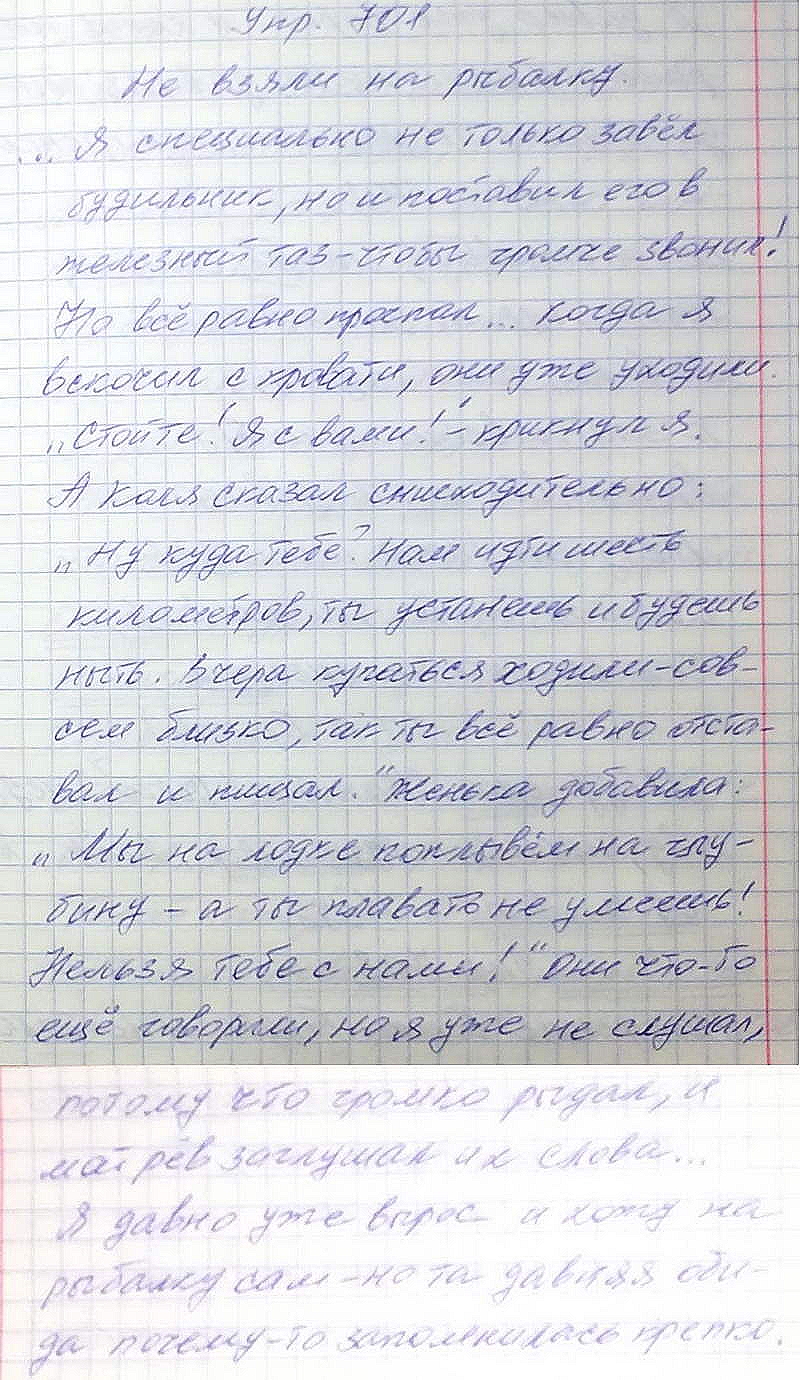 Упр. 701
Не взяли на рыбалку.
... Я специально не только завёл
будильник, но и поставил его в
железный таз - чтобы громче звонил!
Но всё равно проспал... Когда я
вскочил с кровати, они уже уходили.
„Стойте! Я с вами!" - крикнул я.
А Коля сказал снисходительно:
„Ну куда тебе? Нам идти шесть
километров, ты устанешь и будешь
ныть. Вчера купаться ходили - сов-
сем близко, так ты всё равно отста-
вал и пищал." Женька добавила:
„Мы на лодке поплывём на глу-
бину - а ты плавать не умеешь!
Нельзя тебе с нами!" Они что-то
ещё говорили, но я уже не слушал,
потому что громко рыдал, и
мой рёв заглушал их слова...
Я давно уже вырос и хожу на
рыбалку сам - но та давняя оби-
да почему-то запомнилась крепко.